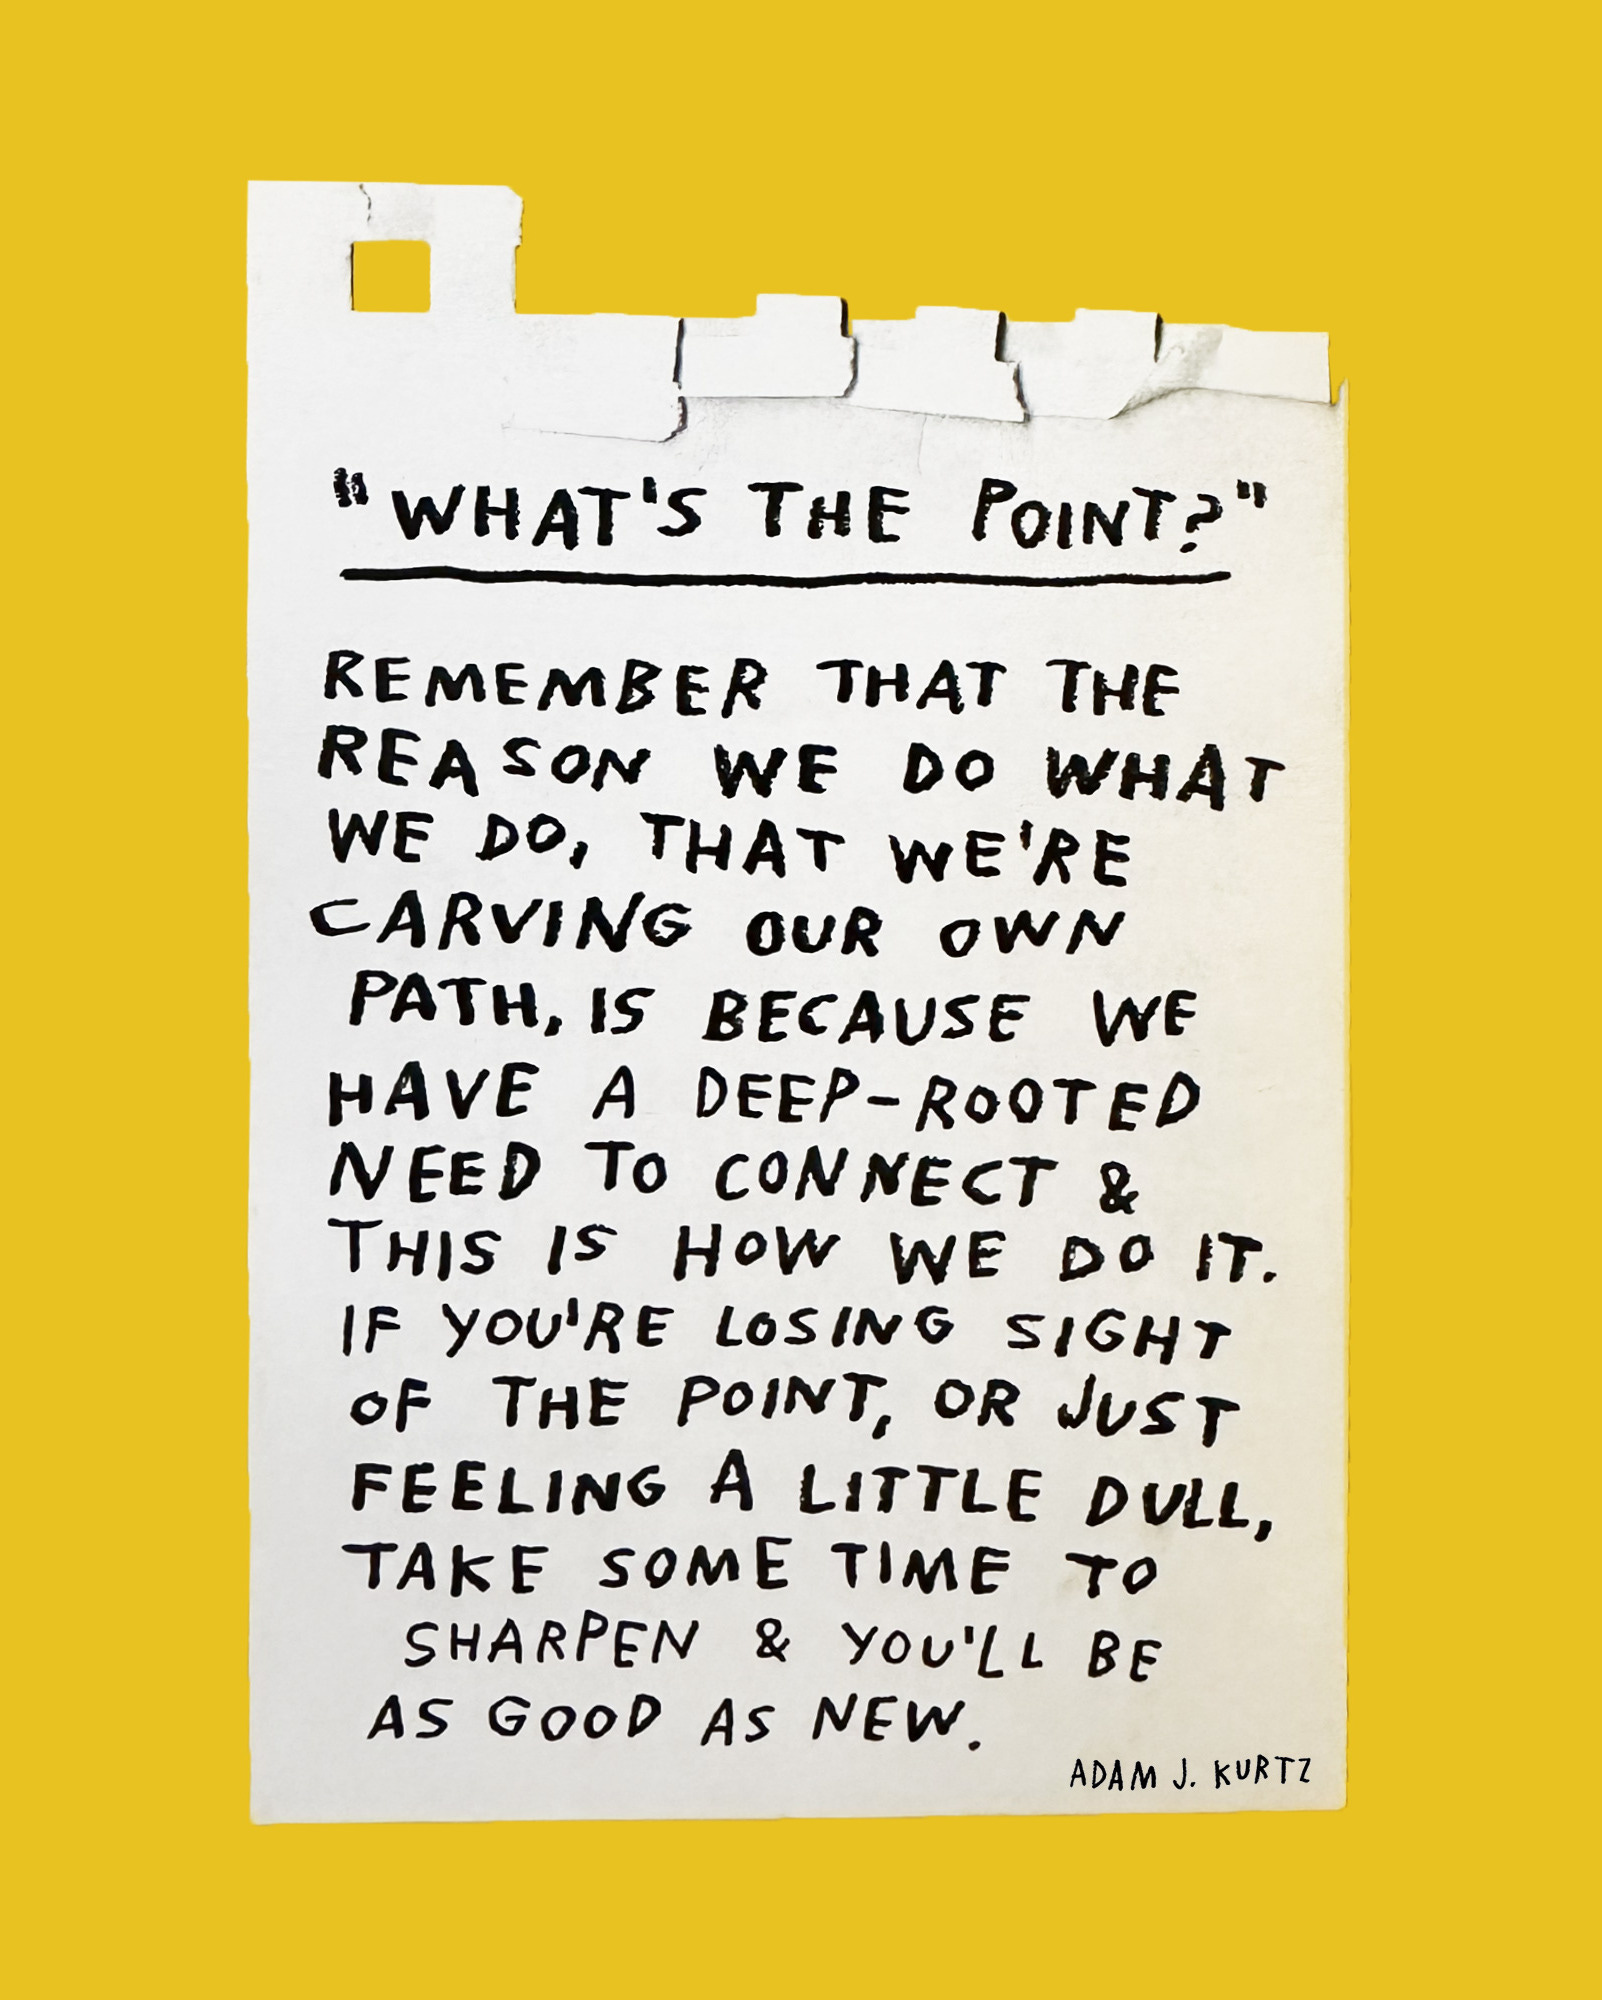 "WHAT'S THE POINT?"
REMEMBER THAT THE
REASON WE DO WHAT
WE DO, THAT WE'RE
CARVING OUR OWN
PATH, IS BECAUSE WE
HAVE A DEEP-ROOTED
NEED TO CONNECT &
THIS IS HOW WE DO IT.
IF YOU'RE LOSING SIGHT
OF THE POINT, OR JUST
FEELING A LITTLE DULL,
TAKE SOME TIME TO
SHARPEN & YOU'LL BE
AS GOOD AS NEW.
ADAM J. KURTZ